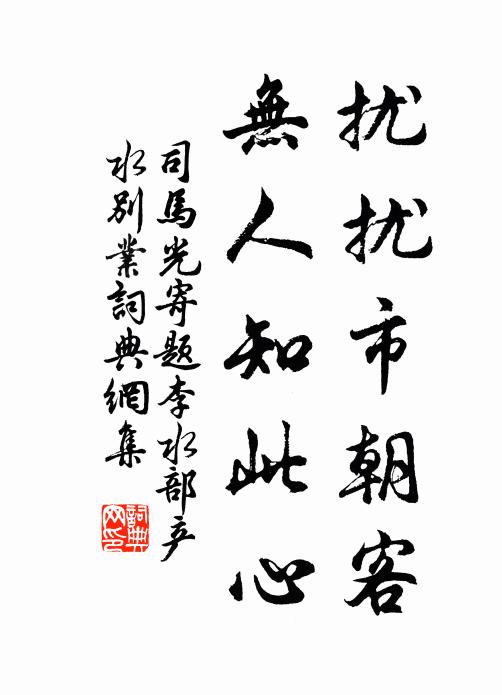 扰扰市朝客
無人知此心
司馬光寄题李水部产
水别業詞典網集
詞典
网印